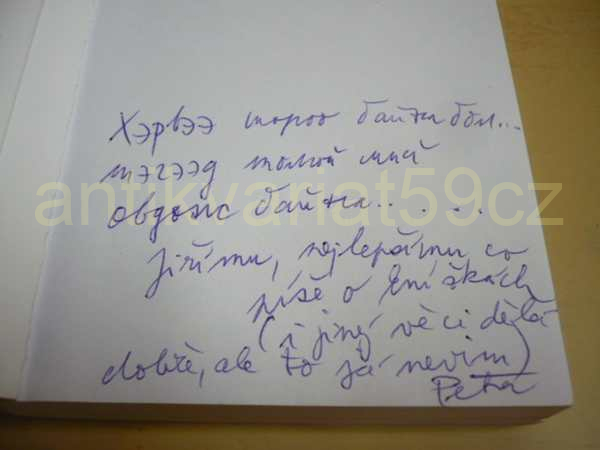 Хэрвээ тороо байна бол...
тэгээд толгой миний
овдож байна.. . . .
antikvariat59cz
Jiřímu, nejlepšímu co
píše o knížkách
(i jiný věci dělá
dobře, ale to já nevím)
Petra